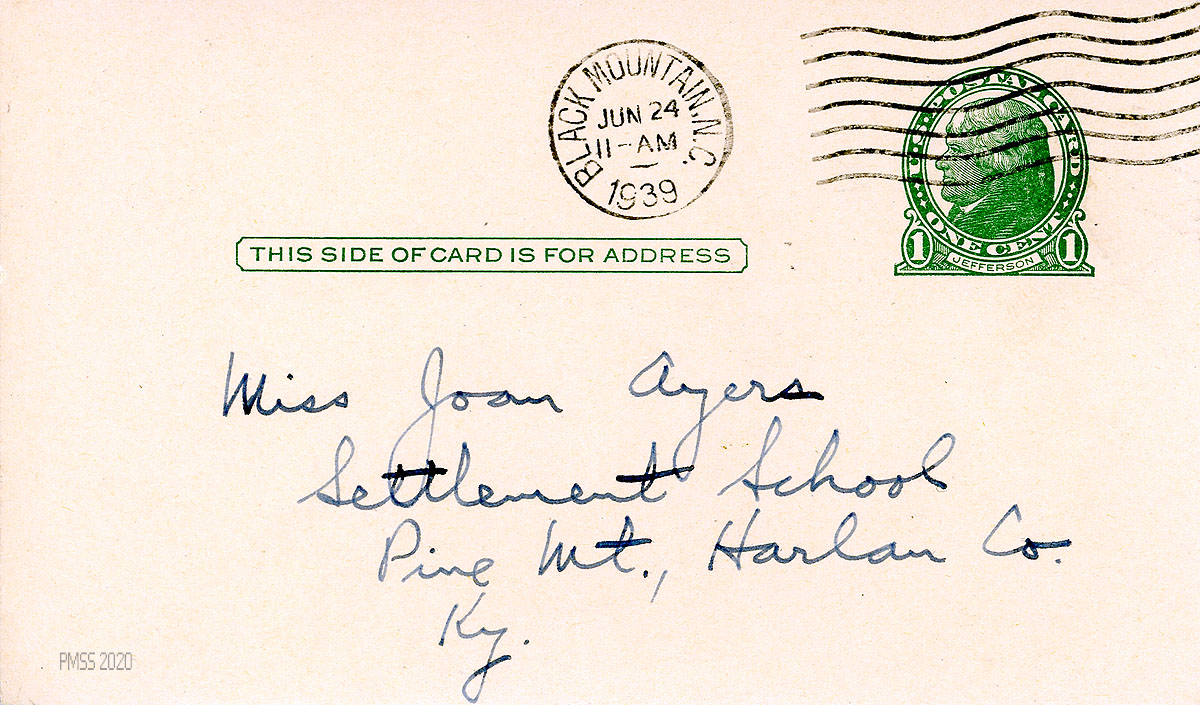 BLACK MOUNTAIN, N.C.
JUN 24
11-AM
1939
U.S. POSTAL CARD
ONE CENT
1 JEFFERSON 1
THIS SIDE OF CARD IS FOR ADDRESS
Miss Joan Ayers
Settlement School
Pine Mt., Harlan Co.
Ky.
PMSS 2020